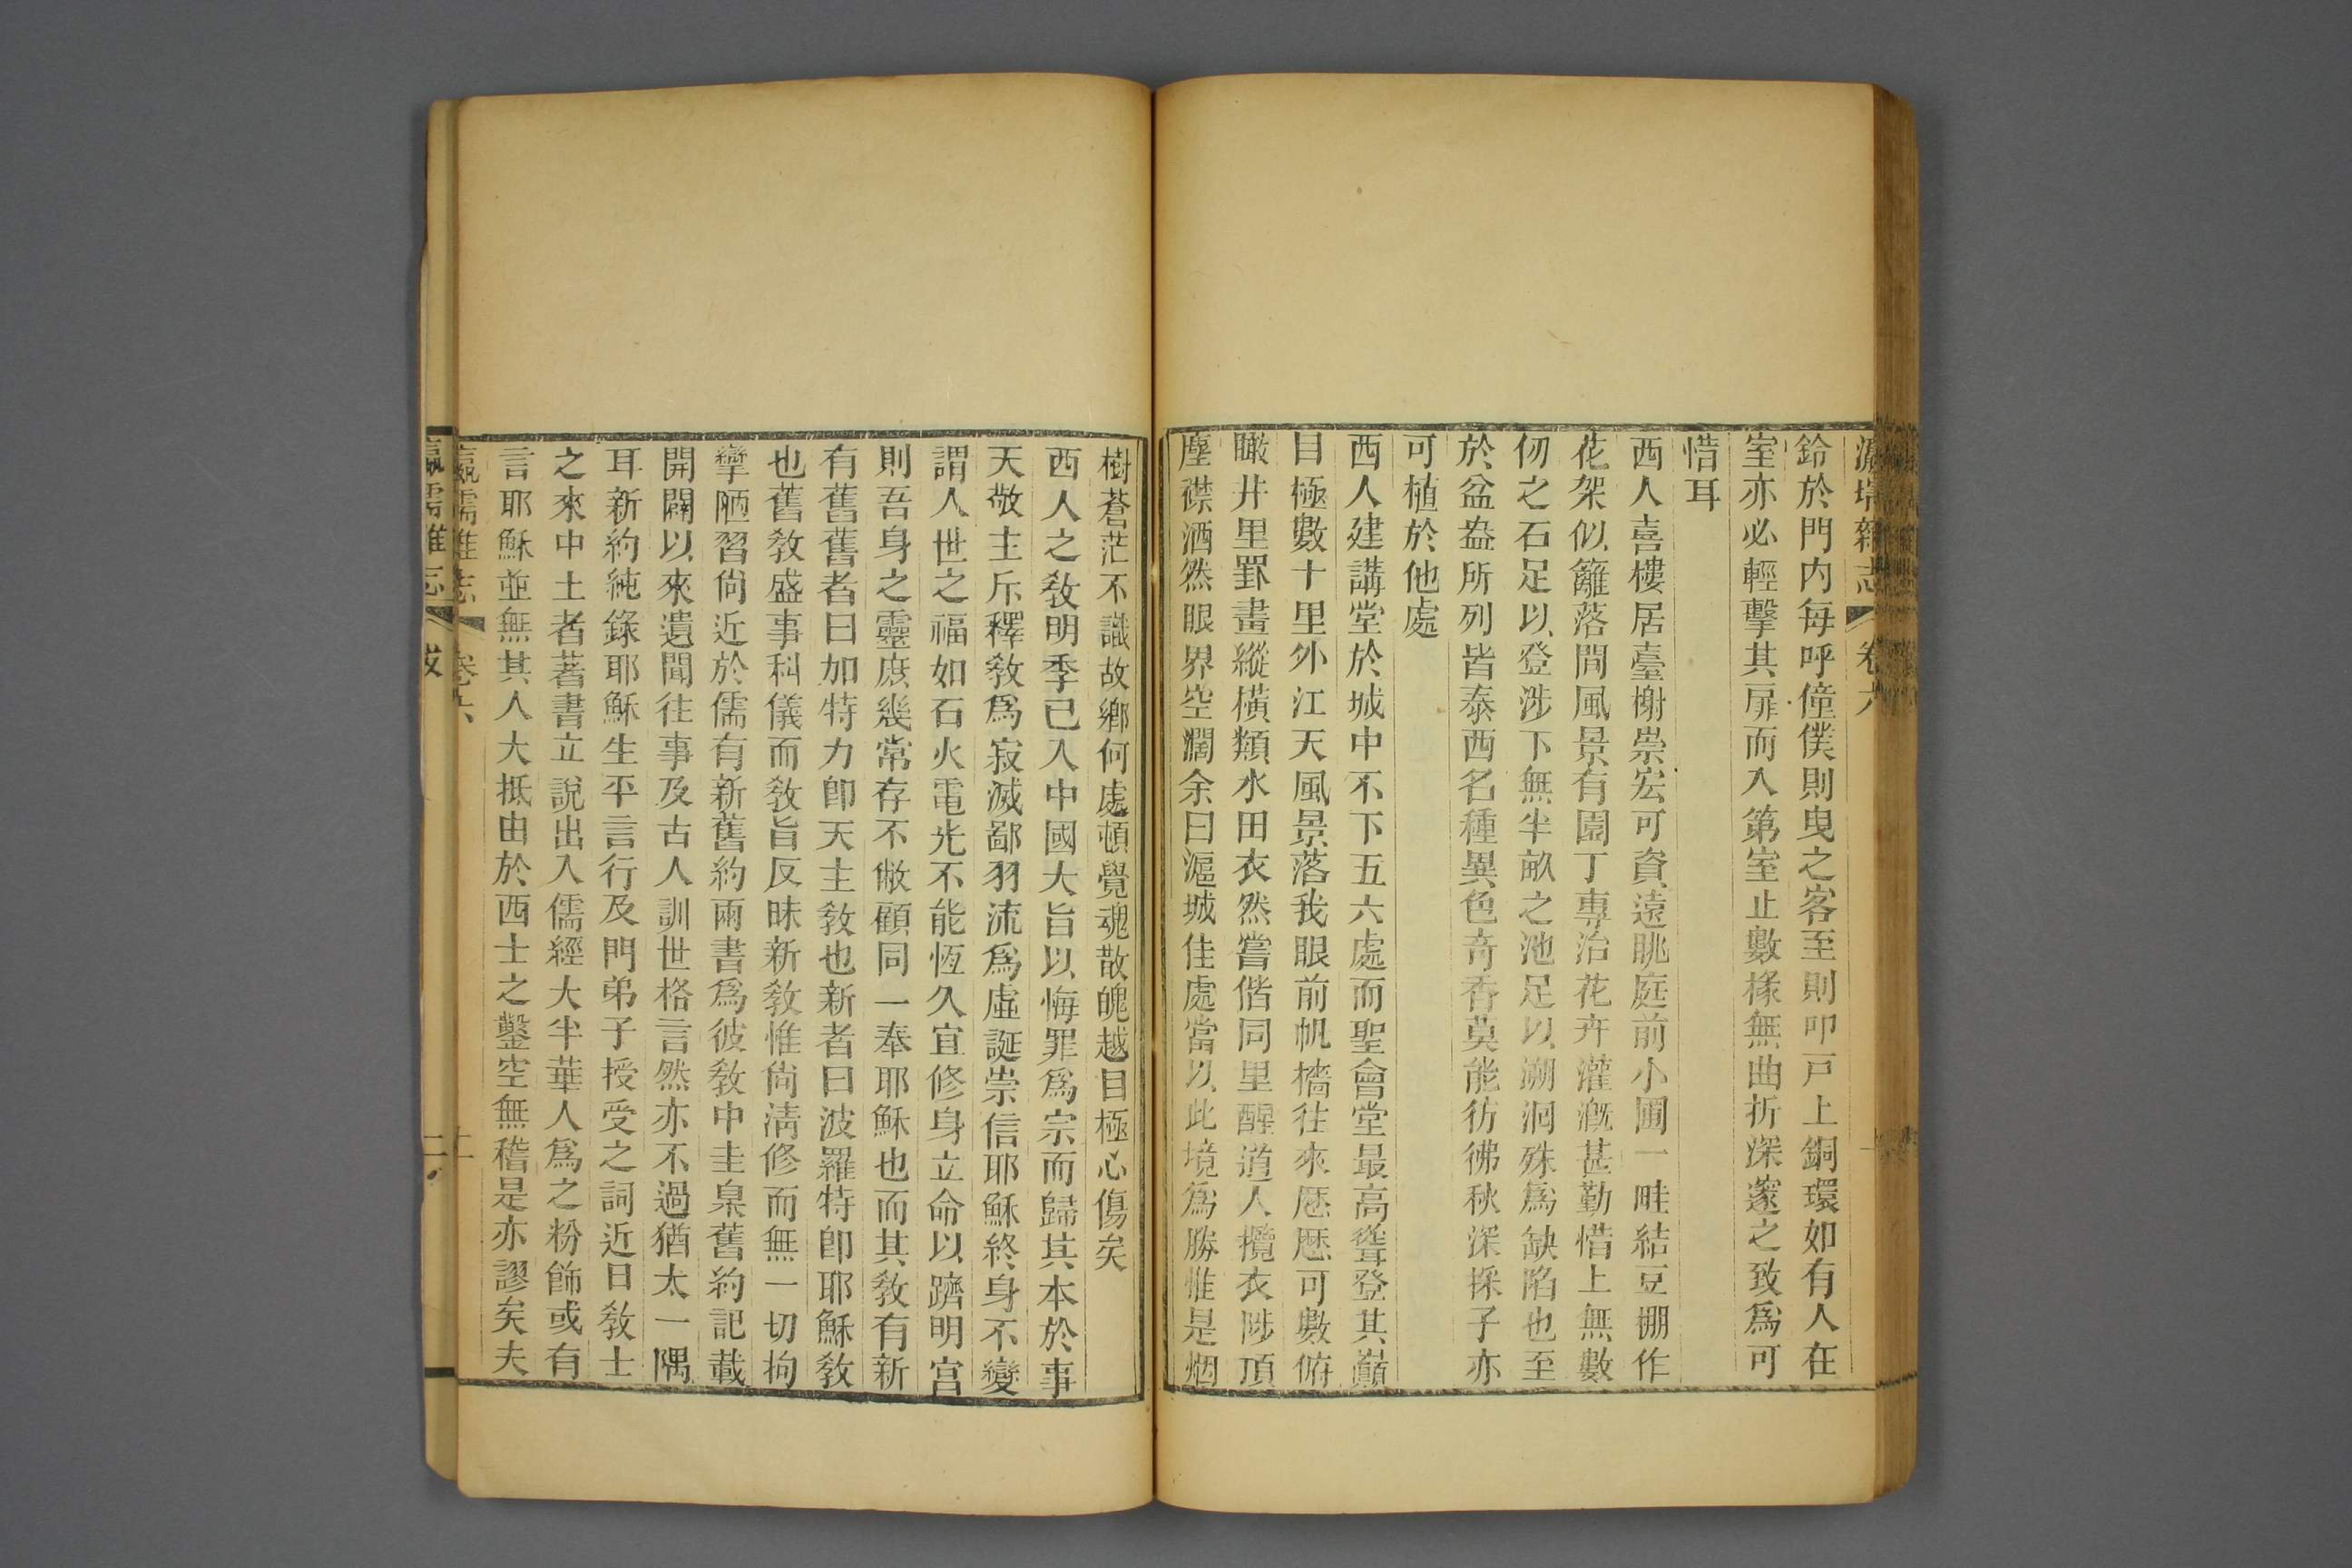 瀛壖雜志 卷六
鈴於門內每呼僮僕則曳之客至則叩戸上銅環如有人在
室亦必輕擊其扉而入第室止數椽無曲折深邃之致爲可
惜耳
西人喜樓居臺榭崇宏可資遠眺庭前小圃一畦結豆棚作
花架似籬落間風景有園丁專治花卉灌漑甚勤惜上無數
仞之石足以登涉下無半畝之池足以溯洄殊爲缺陷也至
於盆盎所列皆泰西名種異色奇香莫能彷彿秋深採子亦
可植於他處
西人建講堂於城中不下五六處而聖會堂最高聳登其巓
目極數十里外江天風景落我眼前帆檣往來歷歷可數俯
瞰井里罫畫縱橫類水田衣然嘗偕同里醒逋人攬衣陟頂
塵襟洒然眼界空濶余曰滬城佳處當以此境爲勝惟是烟
樹蒼茫不識故鄕何處頓覺魂散魄越目極心傷矣
西人之敎明季已入中國大旨以悔罪爲宗而歸其本於事
天敬主斥釋敎爲寂滅鄙羽流爲虛誕崇信耶穌終身不變
謂人世之福如石火電光不能恆久宜修身立命以躋明宮
則吾身之靈庶幾常存不敝顧同一奉耶穌也而其敎有新
有舊舊者曰加特力卽天主敎也新者曰波羅特卽耶穌敎
也舊敎盛事科儀而敎旨反昧新敎惟尙淸修而無一切拘
攣陋習尙近於儒有新舊約兩書爲彼敎中圭臬舊約記載
開闢以來遺聞往事及古人訓世格言然亦不過猶太一隅
耳新約純錄耶穌生平言行及門弟子授受之詞近日敎士
之來中土者著書立說出入儒經大半華人爲之粉飾或有
言耶穌並無其人大抵由於西士之鑿空無稽是亦謬矣夫
瀛壖雜志 卷六
瀛壖雜志 跋